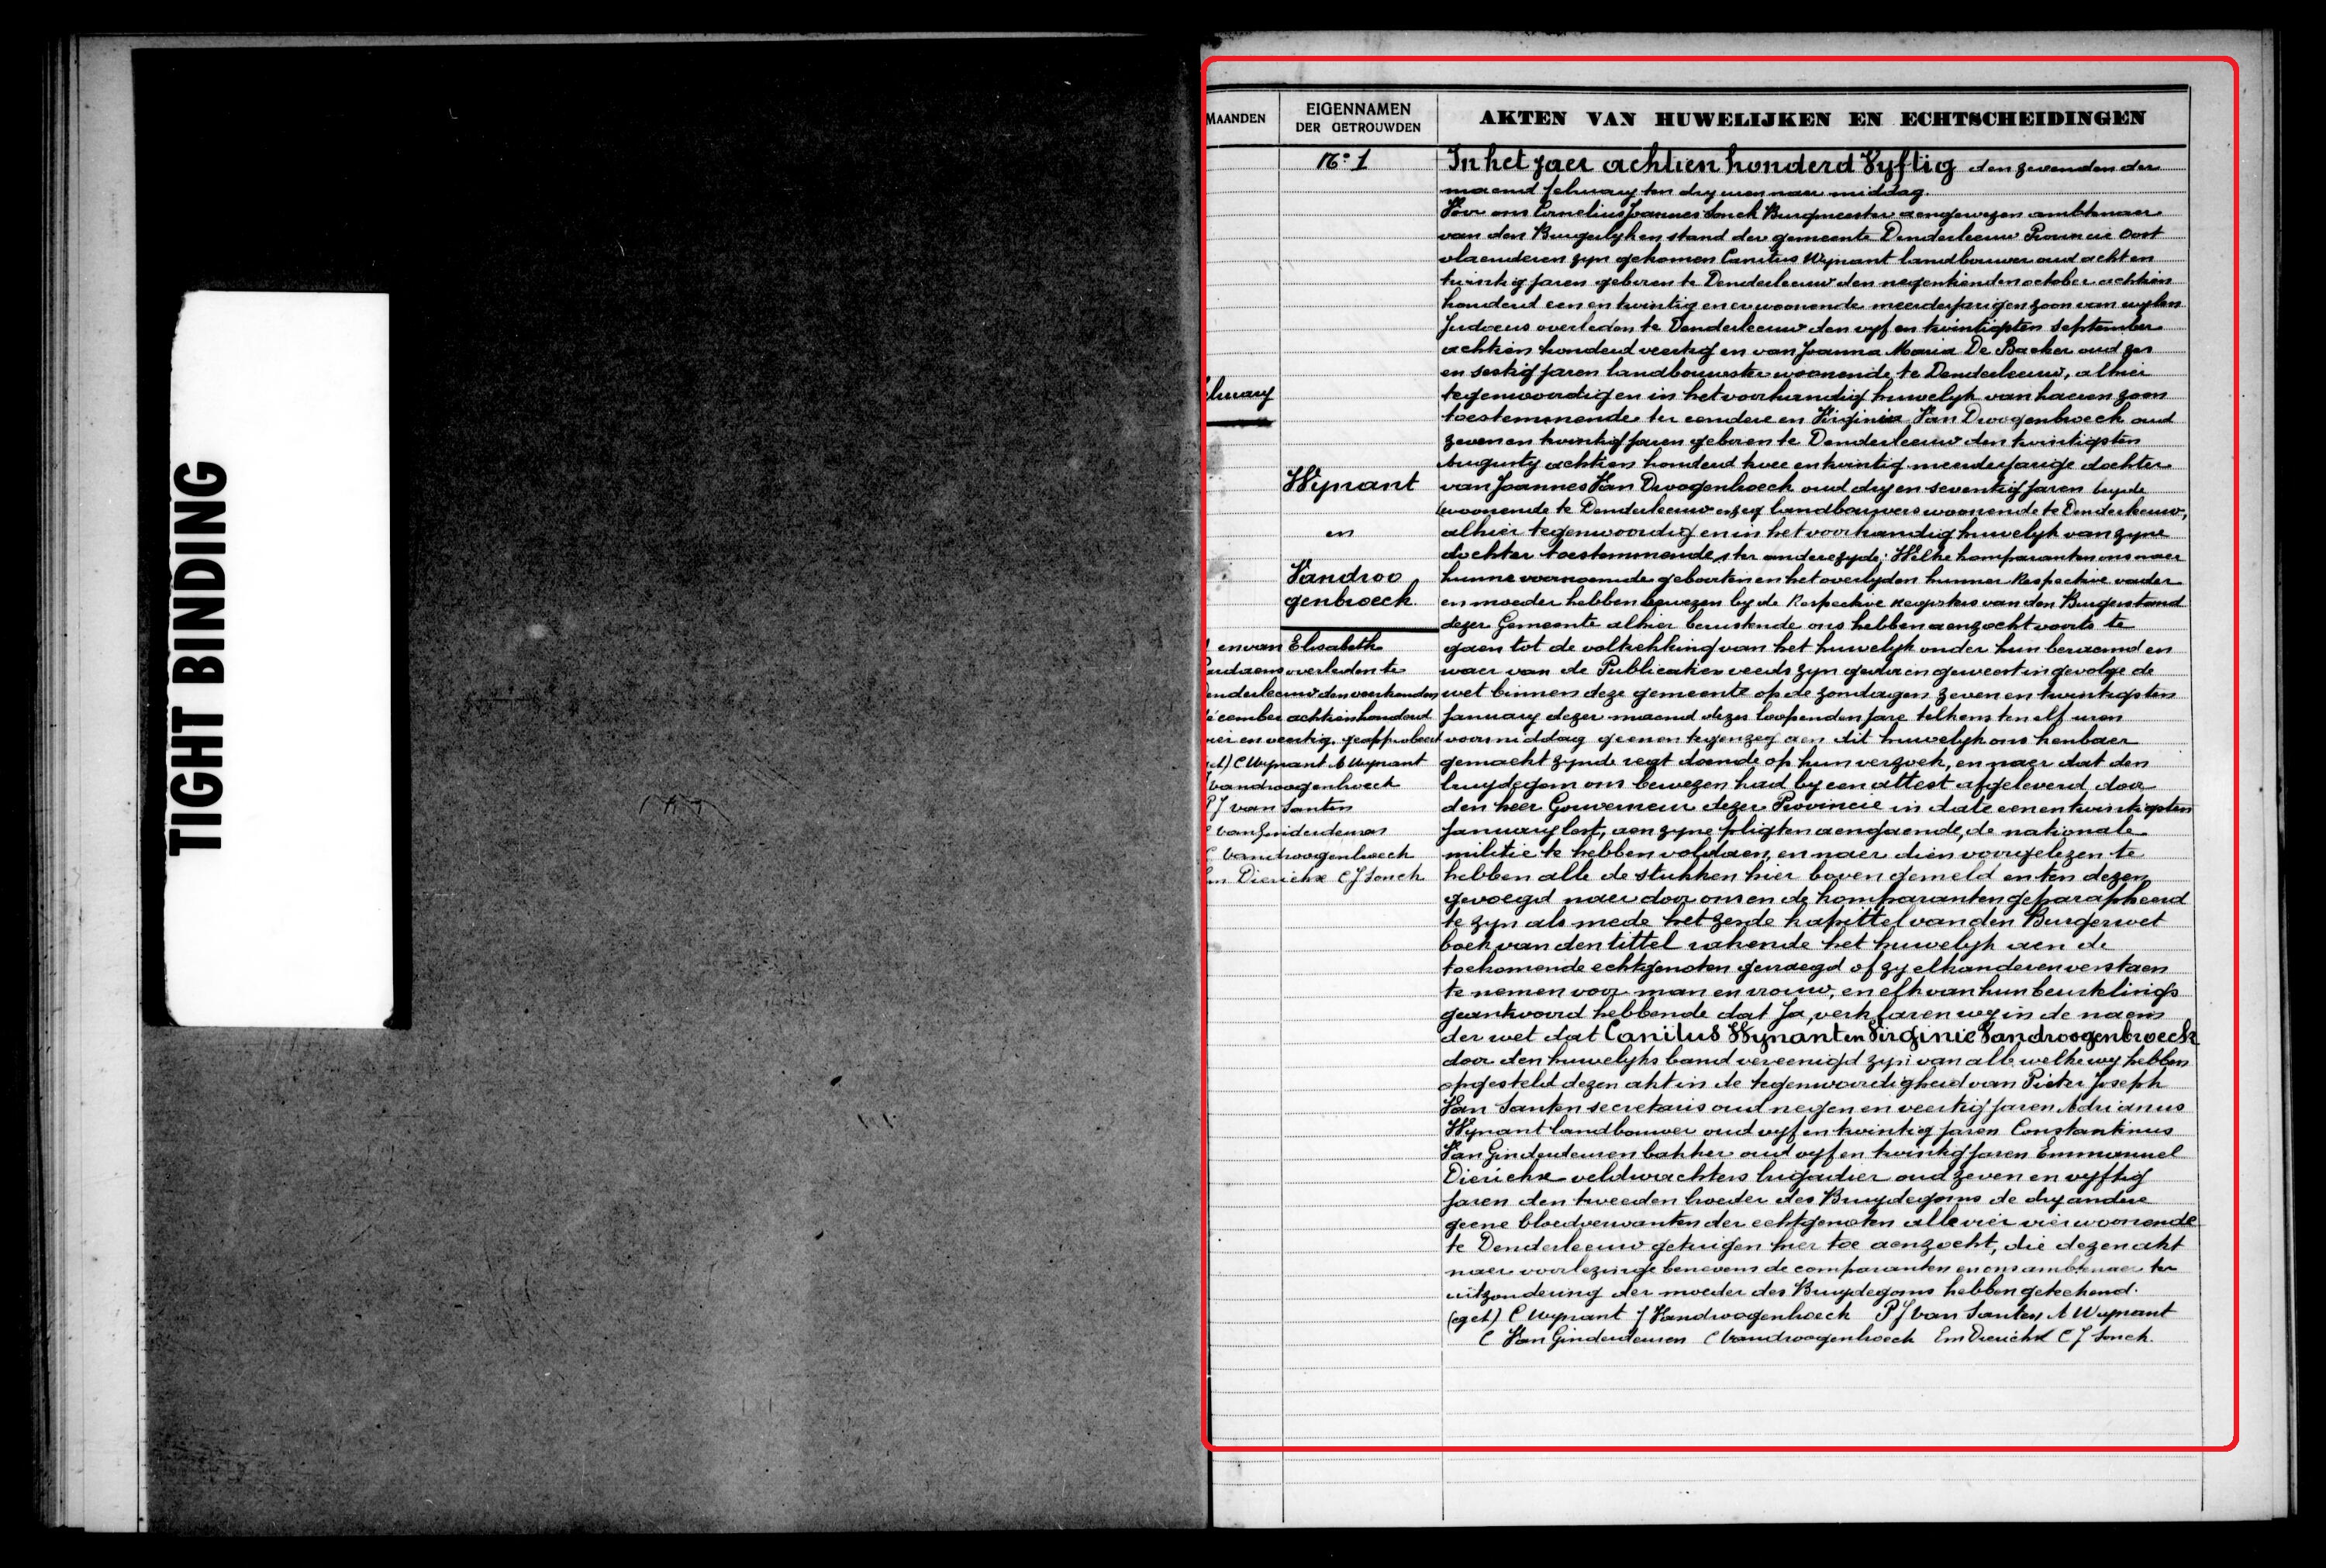 TIGHT BINDING
MAANDEN
EIGENNAMEN
DER GETROUWDEN
AKTEN VAN HUWELIJKEN EN ECHTSCHEIDINGEN
N:º 1
In het jaer achtien honderd Vyftig den zevenden der
maend february ten dry uren naer middag.
Voor ons Cornelius Joannes Sonck Burgmeester aengewezen ambtenaer
van den Burgerlyken stand der gemeente Denderleeuw Provincie Oost
vlaenderen zyn gekomen Canitus Wynant landbouwer oud acht en
twintig jaren geboren te Denderleeuw den negentienden october achtien
honderd een en twintig en er woonende meerderjarigen zoon van wylen
Judocus overleden te Denderleeuw den vyf en twintigsten September
achtien honderd veertig en van Joanna Maria De Backer oud zes
en sestig jaren landbouwster woonende te Denderleeuw, alhier
tegenwoordig en in het voorhandig huwelyk van haeren zoon
toestemmende ter eendere en Virginia Van Droogenbroeck oud
zeven en twintig jaren geboren te Denderleeuw den twintigsten
Augusty achtien honderd twee en twintig meerderjarige dochter
van Joannes Van Droogenbroeck oud dry en seventig jaren beyde
woonende te Denderleeuw landbouwers woonende te Denderleeuw,
alhier tegenwoordig en in het voorhandig huwelyk van zyne
dochter toestemmende, ter andere zyde; Welke komparanten ons naer
hunne voornoemde geboorten en het overlyden hunner Respective vader
en moeder hebben bewezen by de Respective registers van den Burgerstand
dezer Gemeente alhier berustende ons hebben aenzocht voorts te
gaen tot de voltrekking van het huwelyk onder hun beraemd en
waer van de Publicatien reeds zyn gedaen geweest in gevolge de
wet binnen deze gemeente op de zondagen zeven en twintigsten
January dezer maend dezes loopenden jare telkens ten elf uren
voormiddag geenen tegenzeg aen dit huwelyk ons kenbaer
gemaekt zynde regt doende op hun verzoek, en naer dat den
bruydegom ons bewezen had by een attest afgeleverd door
den heer Gouverneur dezer Provincie in date eenen twintigsten
January lest, aen zyne pligten aengaende, de nationale
militie te hebben voldaen, en naer dien voorgelezen te
hebben alle de stukken hier boven gemeld en ten dezen
gevoegd naer door ons en de komparanten geparapheerd
te zyn als mede het zesde kapittel van den Burgerwet
boek van den tittel rakende het huwelyk aen de
toekomende echtgenoten gevraegd of zy elkanderen verstaen
te nemen voor man en vrouw, en elk van hun beurtelings
geantwoord hebbende dat Ja, verklaren wy in de naem
der wet dat Canitus Wynant en Virginie Vandroogenbroeck
door den huwelyks band vereenigd zyn van alle welke wy hebben
opgesteld dezen akt in de tegenwoordigheid van Pieter Joseph
Van Santen secretaris oud negen en veertig jaren Adrianus
Wynant landbouwer oud vyf en twintig jaren Constantinus
Van Ginderdeuren bakker oud vyf en twintig jaren Emmanuel
Dierickx veldwachters brigadier oud zeven en vyftig
jaren den tweeden broeder des Bruydegoms de dry andere
geene bloedverwanten der echtgenoten alle vier vier woonende
te Denderleeuw getuigen hier toe aenzocht, die dezen akt
naer voorlezinge benevens de comparanten en ons ambtenaer ter
uitzondering der moeder des Bruydegoms hebben geteekend.
(get) C Wynant J Vandroogenbroeck P J Van Santen A Wynant
C Van Ginderdeuren C Vandroogenbroeck Em Dierickx C J Sonck.
Wynant
en
Vandroo
genbroeck.
en van Elisabeth
overleden te
december achtien honderd
vier en veertig, geapprobeert
C Wynant A Wynant
Vandroogenbroeck
P J van Santen
Van Ginderdeuren
C Vandroogenbroeck
Em Dierickx C J Sonck